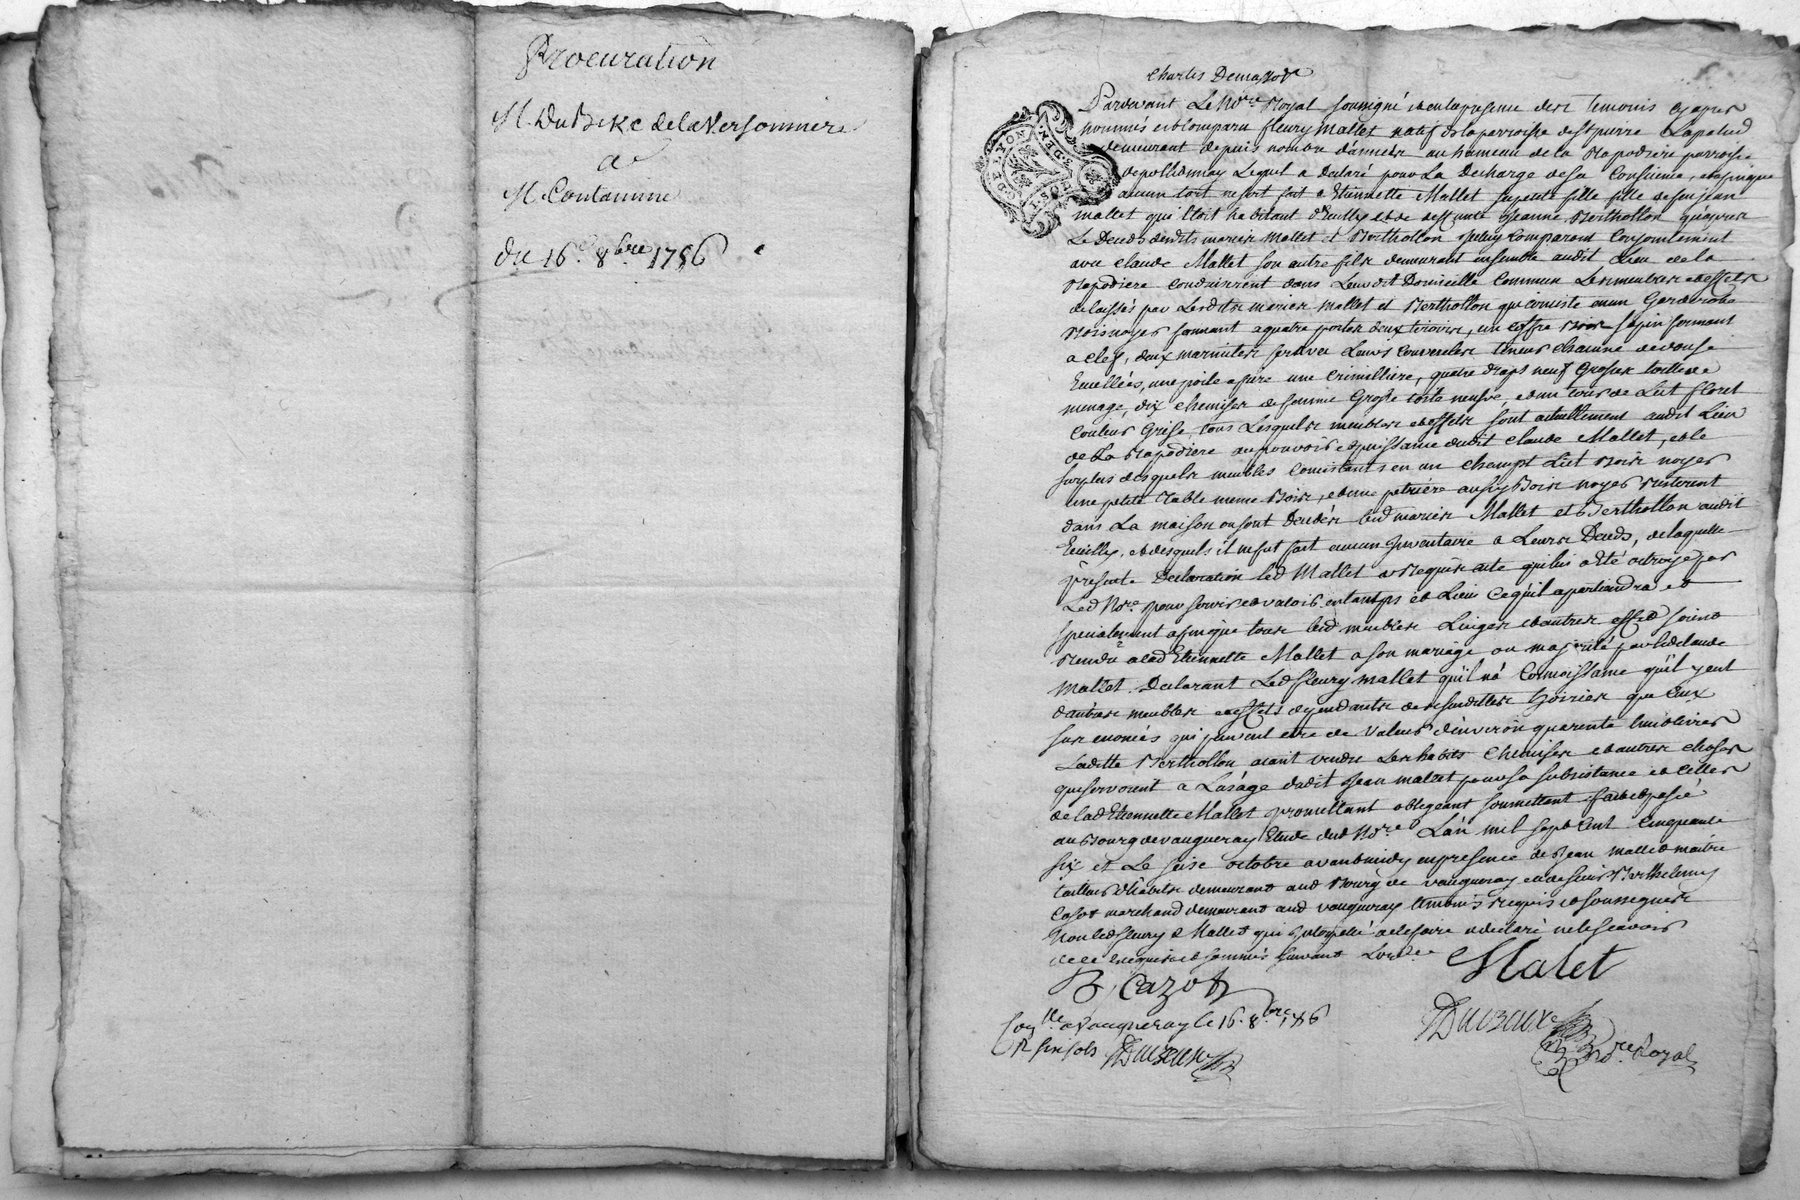 Procuration
M. DuBske de la Versonniere
a
M. Contamine
du 16e. 8bre 1756
Charles Demazod
Pardevant Le Nore Royal soussigné et en la presence des temoins cy apres
nommés est Comparu fleury Mallet natif de la parroisse de st pierre Lapalud
demeurant depuis nombre d'années au hameau de la Rapodiere parroisse
de pollionnay Lequel a declaré pour La decharge de sa Consience, et afin que
aucun tort ne soit fait a Etiennette Mallet sa petite fille fille de feu jean
mallet qui Etoit habitant d'Ecully et de deffunte Jeanne Berthollon qu'apres
Le Deceds desdits mariés Mallet et Berthollon Celuy Comparant Conjointement
avec Claude Mallet son autre fils demeurant ensemble audit Lieu de la
Rapodiere Conduisirent dans Leurdit Domicille Commun Les meubles et effets
delaissés par Lesdits mariés Mallet et Berthollon qui consiste en un Garderobe
Bois noyer fermant a quatre portes deux tiroirs, un coffre Bois sapin fermant
a clef, deux marmittes fer avec Leurs Couvercles teneur chacune de douse
Ecuellées, une poile a frire une Crimilliere, quatre draps neuf Grosse toille de
menage, dix chemises de femme Grosse toile neufve, et un tour de Lit floret
Couleur Grise tous Lesquels meubles et effets sont actuellement audit Lieu
de La Rapodiere au pouvoir et puissance dudit Claude Mallet, et le
surplus desquels meubles Consistants en un champt Lit Bois noyer
une petite Table meme Bois, et une petriere aussy Bois noyer Resterent
dans La maison ou sont Decedés lesd mariés Mallet et Berthollon audit
Ecuilly, et desquels il ne fut fait aucun Inventaire a Leurs Deceds, de laquelle
presente Declaration led Mallet a Requis acte qui luy a Eté octroyé par
Led Nore pour servir et valoir en tamps et Lieu Ce qu'il apartiendra et
specialement afin que tous lesd meubles Linges et autres effets soient
Rendu a lad Etiennette Mallet a son mariage ou majorité par led Claude
Mallet. Declarant Led fleury Mallet qu'il n'a Connoissance qu'il y eut
d'autres meubles et effets dependants desdittes hoiries que Ceux
sus enoncés qui peuvent etre de Valeur d'environ quarente huit livres
Laditte Berthollon aiant vendu Les habits Chemises et autres choses
qui servoient a L'usage dudit Jean Mallet pour sa subsistance et Celles
de lad Etiennette Mallet promettant obligeant soumettant fait et passé
au Bourg de vaugneray Etude dud Nore L'an mil sept Cent Cinquante
six et Le seise octobre avant midy en presence de Jean Mallet maitre
tailleur d'habits demeurant aud Bourg de vaugneray et de sieur Barthelemy
Casot marchand demeurant aud vaugneray temoins requis et soussignés
Non led fleury Mallet qui Interpellé de le faire a declaré ne le scavoir
de ce Enquis et sommés suivant Lorde
B. Cazot
Malet
Con.lle a Vaugneray le 16. 8bre 1756
R six sols
Nore. Royal